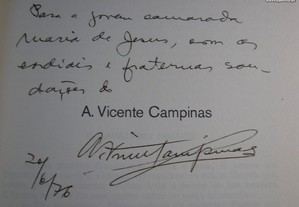 Para a jovem camarada
Maria de Jesus, com as
cordiais e fraternas sau-
dações de
A. Vicente Campinas
A. Vicente Campinas
24/6/76